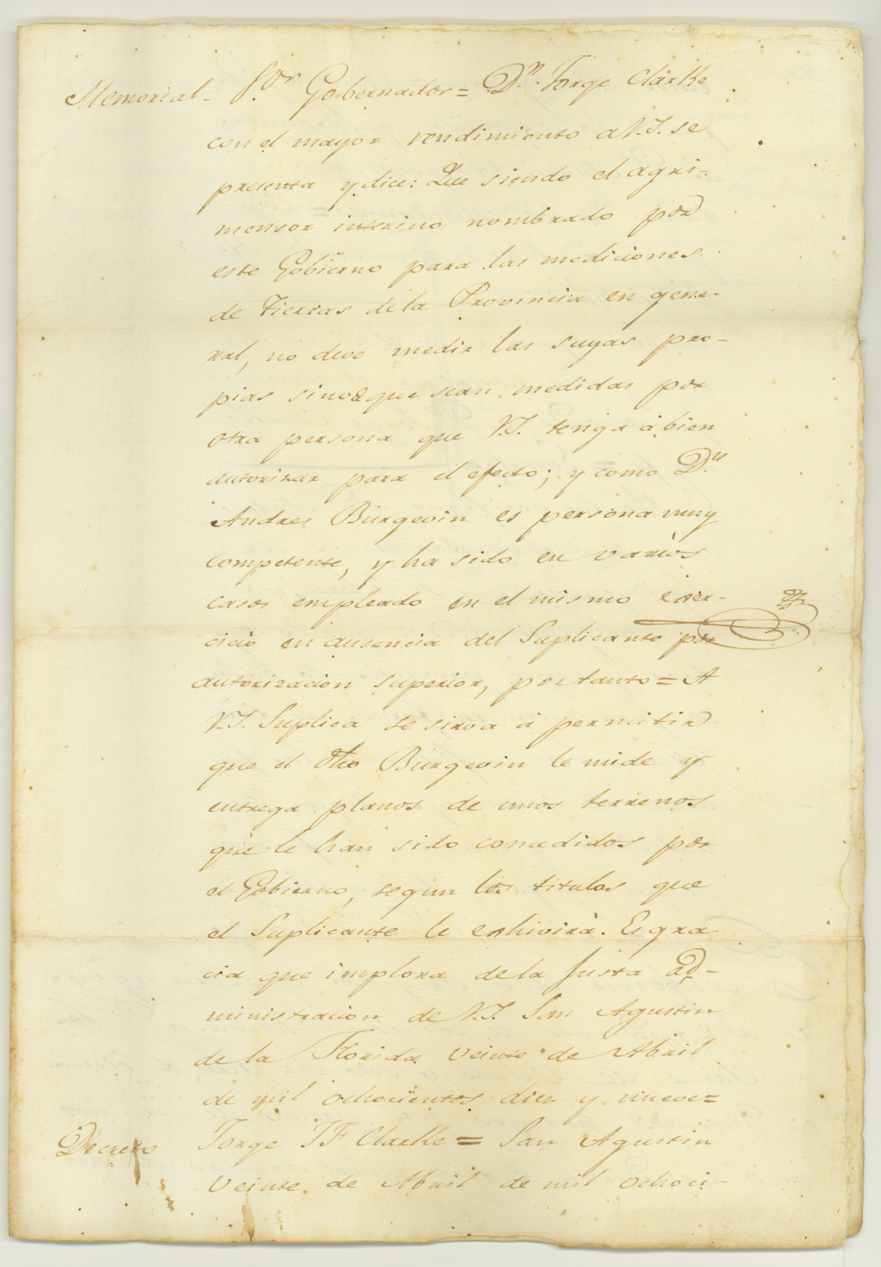 Memorial - S.or Gobernador = D.n Jorge Clarke
con el mayor rendimiento a V.S. se
presenta y dice: Que siendo el agri-
mensor interino nombrado por
este Gobierno para las mediciones
de Tierras de la Provincia en gene-
ral, no deve medir las suyas pro-
pias sino que sean medidas por
otra persona que V.S. tenga à bien
autorisar para el efecto; y como D.n
Andres Burgevin es persona muy
competente, y ha sido en varios
casos empleado en el mismo exer-
cicio en ausencia del Suplicante por
autorizacion superior, por tanto = A
V.S. Suplica se sirva à permitir
que el dho Burgevin le mide y
entrega planos de unos terrenos
que le han sido concedidos por
el Gobierno, segun los titulos que
el Suplicante le exhivirà. Es gra
cia que implora de la Justa ad-
ministracion de V.S. San Agustin
de la Florida veinte de Abril
de mil ochocientos diez y nueve =
Decreto Jorge J F Clarke = San Agustin
Veinte de Abril de mil ochoci-